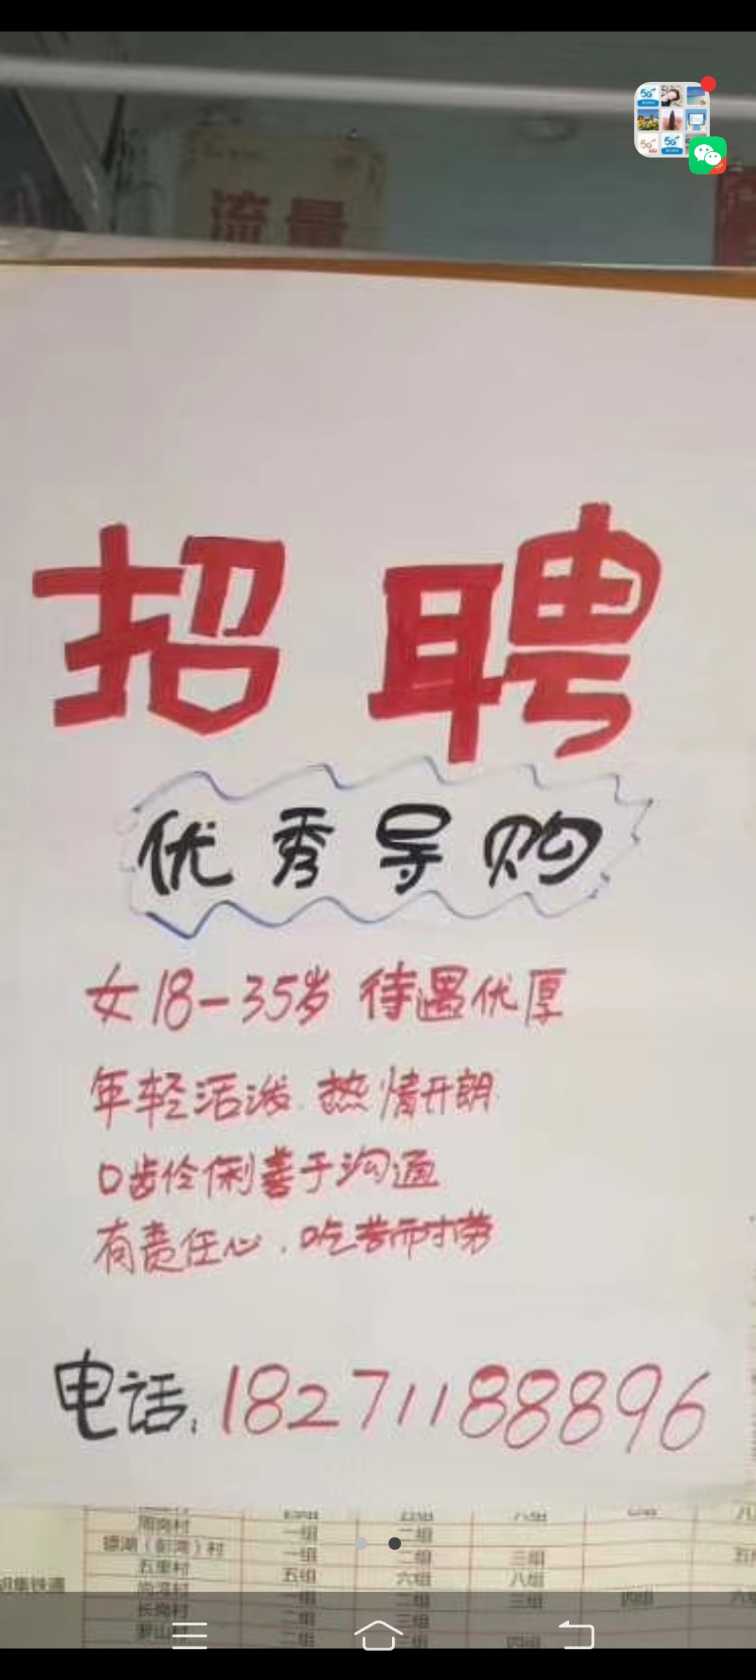 流量
招聘
优秀导购
女18-35岁 待遇优厚
年轻活泼.热情开朗
口齿伶俐善于沟通
有责任心.吃苦耐劳
电话:18271188896
周岗村 一组 二组
镖湖(彭湾)村 一组 二组 三组
五里村 五组 六组 八组
二组 三组 四组
长岗村 三组
罗山村 二组 四组
胡集铁通